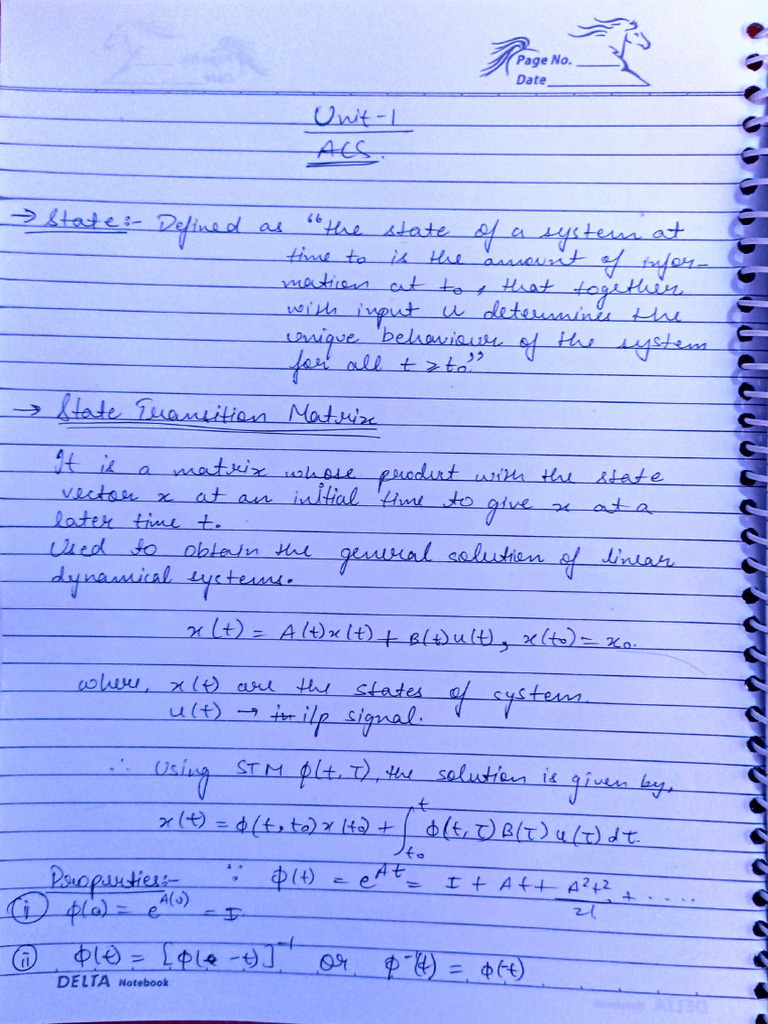 Page No.
Date
Unit-1
ACS.
→ State:- Defined as "the state of a system at
time t₀ is the amount of infor-
mation at t₀, that together
with input u determines the
unique behaviour of the system
for all t ≥ t₀."
→ State Transition Matrix
It is a matrix whose product with the state
vector x at an initial time t₀ give x at a
later time t.
Used to obtain the general solution of linear
dynamical systems.
x(t) = A(t)x(t) + B(t)u(t), x(t₀) = x₀.
where, x(t) are the states of system.
u(t) → i/p signal.
∴ Using STM ϕ(t,τ), the solution is given by,
x(t) = ϕ(t,t₀) x(t₀) + ∫ₜ₀ᵗ ϕ(t,τ) B(τ) u(τ) dτ.
Properties:- ∵ ϕ(t) = e^{At} = I + At + A²t²/2! + .....
(i) ϕ(0) = e^{A(0)} = I
(ii) ϕ(t) = [ϕ(-t)]⁻¹ or ϕ⁻¹(t) = ϕ(-t)
DELTA Notebook